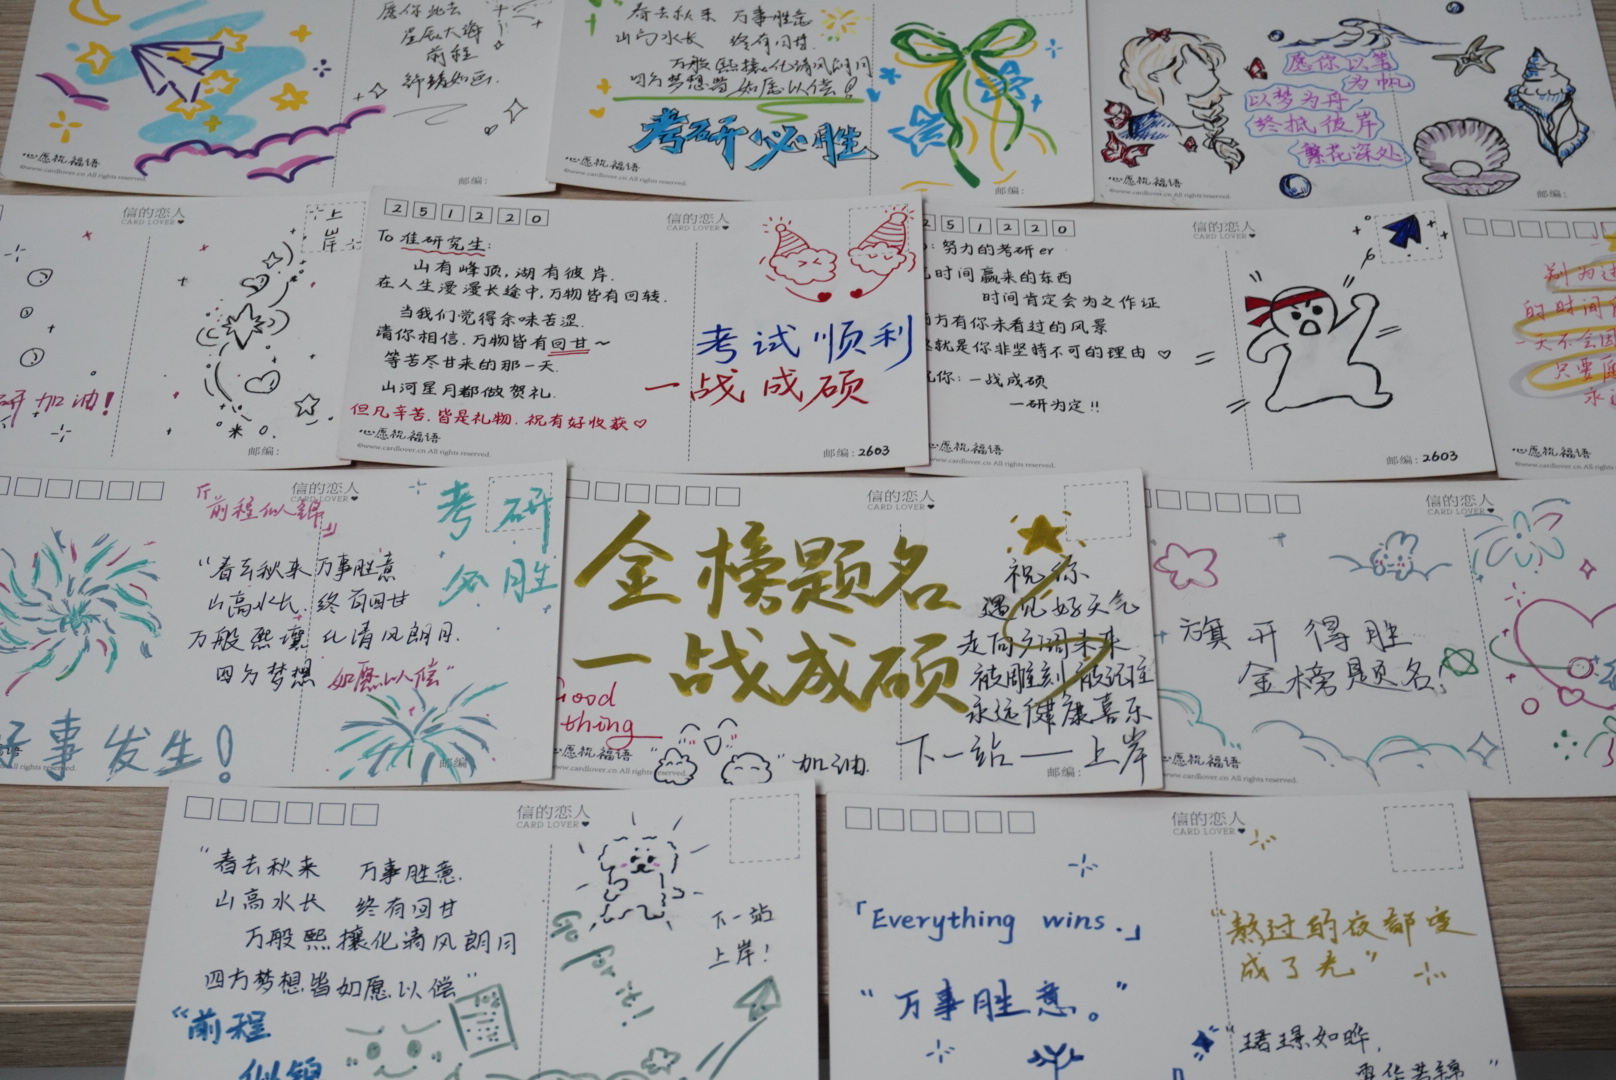 愿你此去
星辰大海
前程
锦绣如画.
心愿执福语
©www.cardlover.cn All rights reserved.
邮编:
春去秋来 万事胜意
山高水长 终有回甘.
万般熙攘化清风朗月
四方梦想皆如愿以偿!
考研必胜
心愿执福语
©www.cardlover.cn All rights reserved.
邮编:
愿你以笔
为帆
以梦为舟
终抵彼岸
繁花深处
心愿执福语
©www.cardlover.cn All rights reserved.
邮编:
信的恋人
CARD LOVER
上岸
研加油!
邮编:
251220
信的恋人
CARD LOVER
To 准研究生:
山有峰顶,湖有彼岸.
在人生漫漫长途中,万物皆有回转.
当我们觉得余味苦涩.
请你相信,万物皆有回甘~
等苦尽甘来的那一天.
山河星月都做贺礼.
但凡辛苦,皆是礼物.祝有好收获♡
考试顺利
一战成硕
心愿执福语
©www.cardlover.cn All rights reserved.
邮编: 2603
51220
信的恋人
CARD LOVER
: 努力的考研er
时间赢来的东西
时间肯定会为之作证
方有你未看过的风景
就是你非坚持不可的理由 ♡
你: 一战成硕
一研为定!!
www.cardlover.cn All rights reserved.
邮编: 2603
信的恋人
CARD LOVER
别为
的时间
一天不会
只要
永
心愿执福语
©www.cardlover.cn All rights reserved.
信的恋人
CARD LOVER
『前程似锦』
考研
必胜
“春去秋来 万事胜意
山高水长. 终有回甘
万般熙攘 化清风朗月.
四方梦想 如愿以偿”
好事发生!
All rights reserved.
邮编:
信的恋人
CARD LOVER
金榜题名
一战成硕
祝你
遇见好天气
走向
被雕刻 被记住
永远健康喜乐
下一站——上岸
Good
thing
心愿执福语
www.cardlover.cn All rights reserved.
“ ” 加油.
邮编:
信的恋人
CARD LOVER
旗开得胜
金榜题名!
心愿执福语
www.cardlover.cn All rights reserved.
信的恋人
CARD LOVER
“春去秋来 万事胜意.
山高水长 终有回甘
万般熙攘化清风朗月
四方梦想皆如愿以偿”
“前程
似锦
Go for it!
下一站
上岸!
信的恋人
CARD LOVER
「Everything wins.」
“万事胜意。”
“熬过的夜都变
成了光”
珺璟如晔,